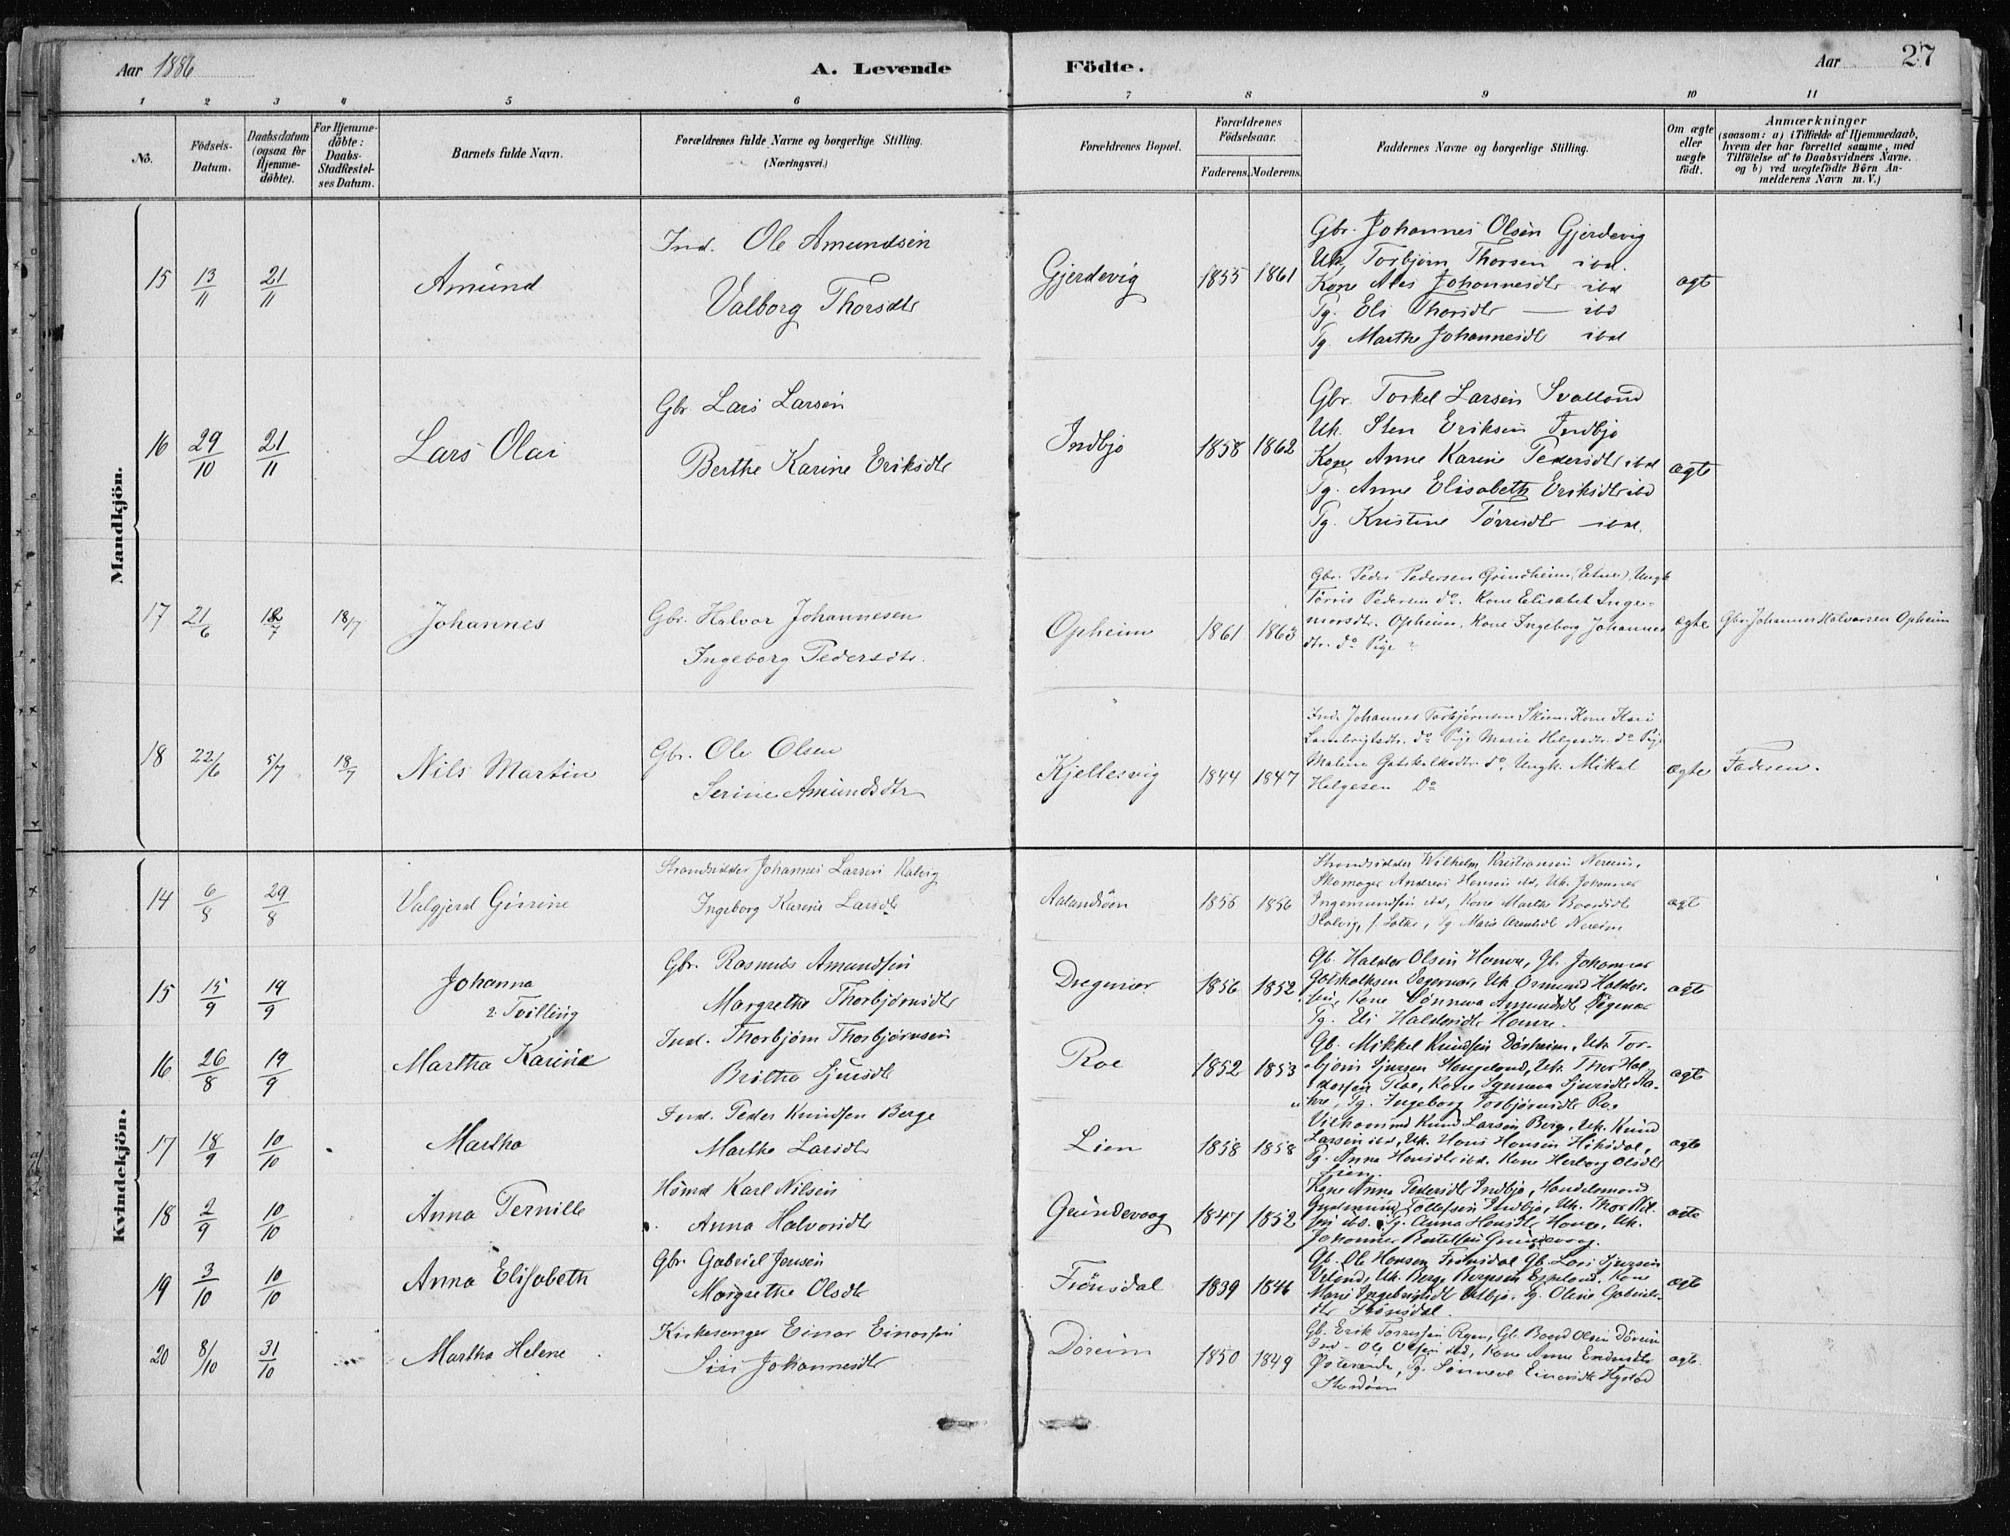 Aar 1886
A. Levende
Födte.
Aar 27
1 2 3 4 5 6 7 8 9 10 11
No.
Födsels-
Datum.
Daabsdatum
(ogsaa for
Hjemme-
döbte).
For Hjemme-
döbte:
Daabs-
Stadfæstel-
ses Datum.
Barnets fulde Navn.
Forældrenes fulde Navne og borgerlige Stilling.
(Næringsvei.)
Forældrenes Bopæl.
Forældrenes
Födselsaar.
Faderens. Moderens.
Faddernes Navne og borgerlige Stilling.
Om ægte
eller
uægte
födt.
Anmærkninger
(saasom: a) i Tilfælde af Hjemmedaab,
hvem der har forrettet samme, med
Tilföielse af to Daabsvidners Navne.
og b) ved uægtefödte Börn An-
melderens Navn m. V.)
Mandkjön.
15 13/11 21/11 Amund
Ind. Ole Amundsen
Valborg Thorsdtr
Gjerdevig 1855 1861
Gbr. Johannes Olsen Gjerdevig
Uk. Torbjørn Thorsen ibd.
Kone Ales Johannesdtr ibd
Pg. Eli Thorsdtr — ibd
Pg. Marthe Johannesdtr ibd
ægt
16 29/10 21/11 Lars Olai
Gbr Lars Larsen
Berthe Karine Eriksdtr
Indbjo 1858 1862
Gbr. Torkel Larsen Svalland
Uk. Sten Eriksen Indbjo
Kone Anne Karine Pedersdtr ibd
Pg. Anne Elisabeth Eriksdtr ibd
Pg. Kristine Tørresdtr — ibd.
ægte
17 21/6 12/7 18/7 Johannes
Gbr. Halvor Johannesen
Ingeborg Pedersdtr.
Opheim 1861 1863
Gbr. Peder Pedersen Grindheim (Etne), Ungk
Tørris Pedersen do. Kone Elisabet Inge-
morsdtr. Opheim, Kone Ingeborg Johannes
dtr. do Pige ?
ægte Gbr. Johannes Halvorsen Opheim
18 22/6 5/7 18/7 Nils Martin
Gbr. Ole Olsen
Serine Amundsdtr
Kjellesvig 1844 1847
Ind. Johannes Torbjørnsen Skien. Kone Kari
Lambrigtsdtr. do Pige Marie Helgesdtr. do Pige
Malene Gotskalksdtr. do, Ungk. Mikal
Helgesen Do
ægte Faderen.
Kvindekjön.
14 6/8 29/8 Valgjerd Girine
Strandsidder Johannes Larsen Kalvig
Ingeborg Karine Larsdtr
Aalandsöen 1855 1856
Strandsidder Wilhelm Kristiansen Nereim,
Skomager Andreas Hansen ibd, Uk. Johannes
Ingemundsen ibd, Kone Marthe Baardsdtr
Kalvig, f. Lothe, Pg Maris Arentsdtr Nereim
ægt
15 15/9 19/9 Johanna
2. Tvilling
Gbr. Rasmus Amundsen
Margrethe Thorbjörnsdtr
Dregenior 1856 1852
Gb. Haldor Olsen Havre, Gb. Johannes
Gotskalksen Degernæs, Uk. Osmund Haldor-
sen, Kone Sönneva Amundsdtr Degernæs
Pg. Eli Haldorsdtr Havre.
ægte
16 26/8 19/9 Martha Karine
Ind. Thorbjørn Thorbjørnsen
Britha Sjursdtr
Roe 1852 1853
Gb. Mikkel Knudsen Dörheim, Uk. Tor-
bjørn Sjursen Haugeland, Uk. Thor Hal-
dorsen Roe, Kone Synneva Sjursdtr
Pg. Ingeborg Torbjörnsdtr Roe
ægte
17 18/9 10/10 Martha
Ind. Peder Knudsen Berge
Marthe Larsdtr
Lien 1858 1858
Knud Larsen Berg, Uk. Knud
Larsen ibd, Uk. Hans Hansen Hiksdal,
Pg. Anna Hansdtr ibd. Kone Herborg Olsdtr
Lien.
ægte
18 2/9 10/10 Anna Pernille
Hömd Karl Nilsen
Anna Halvorsdtr
Grindevaag 1847 1852
Kone Anna Pedersdtr Indbjo, Handelsmand
Gudmund Tollefsen Indbjo, Uk. Thor Nil-
sen ibd. Pg. Anna Hansdtr Havre, Uk.
Johannes Bertelsen Grindevaag.
ægte
19 3/10 10/10 Anna Elisabeth
Gbr. Gabriel Jensen
Margrethe Olsdtr
Frönsdal 1839 1846
Gb. Ole Hansen Frönsdal Gb. Lars Sjursen
Veland, Uk. Berge Bergesen Espeland. Kone
Marie Ingebrigtsdtr Utbjo. Pg. Oline Gabriels-
dtr Frönsdal
ægte
20 8/10 31/10 Martha Helene
Kirkesanger Einar Einarsen
Siri Johannesdtr
Döreim 1850 1849
Gb. Erik Torressen Rygen, Gb. Baard Olsen Döreim
Ind. Ole Olsen ibd, Kone Anne Endresdtr
Pg. Sönneve Einarsdtr Hystad
Stordöen
ægte.